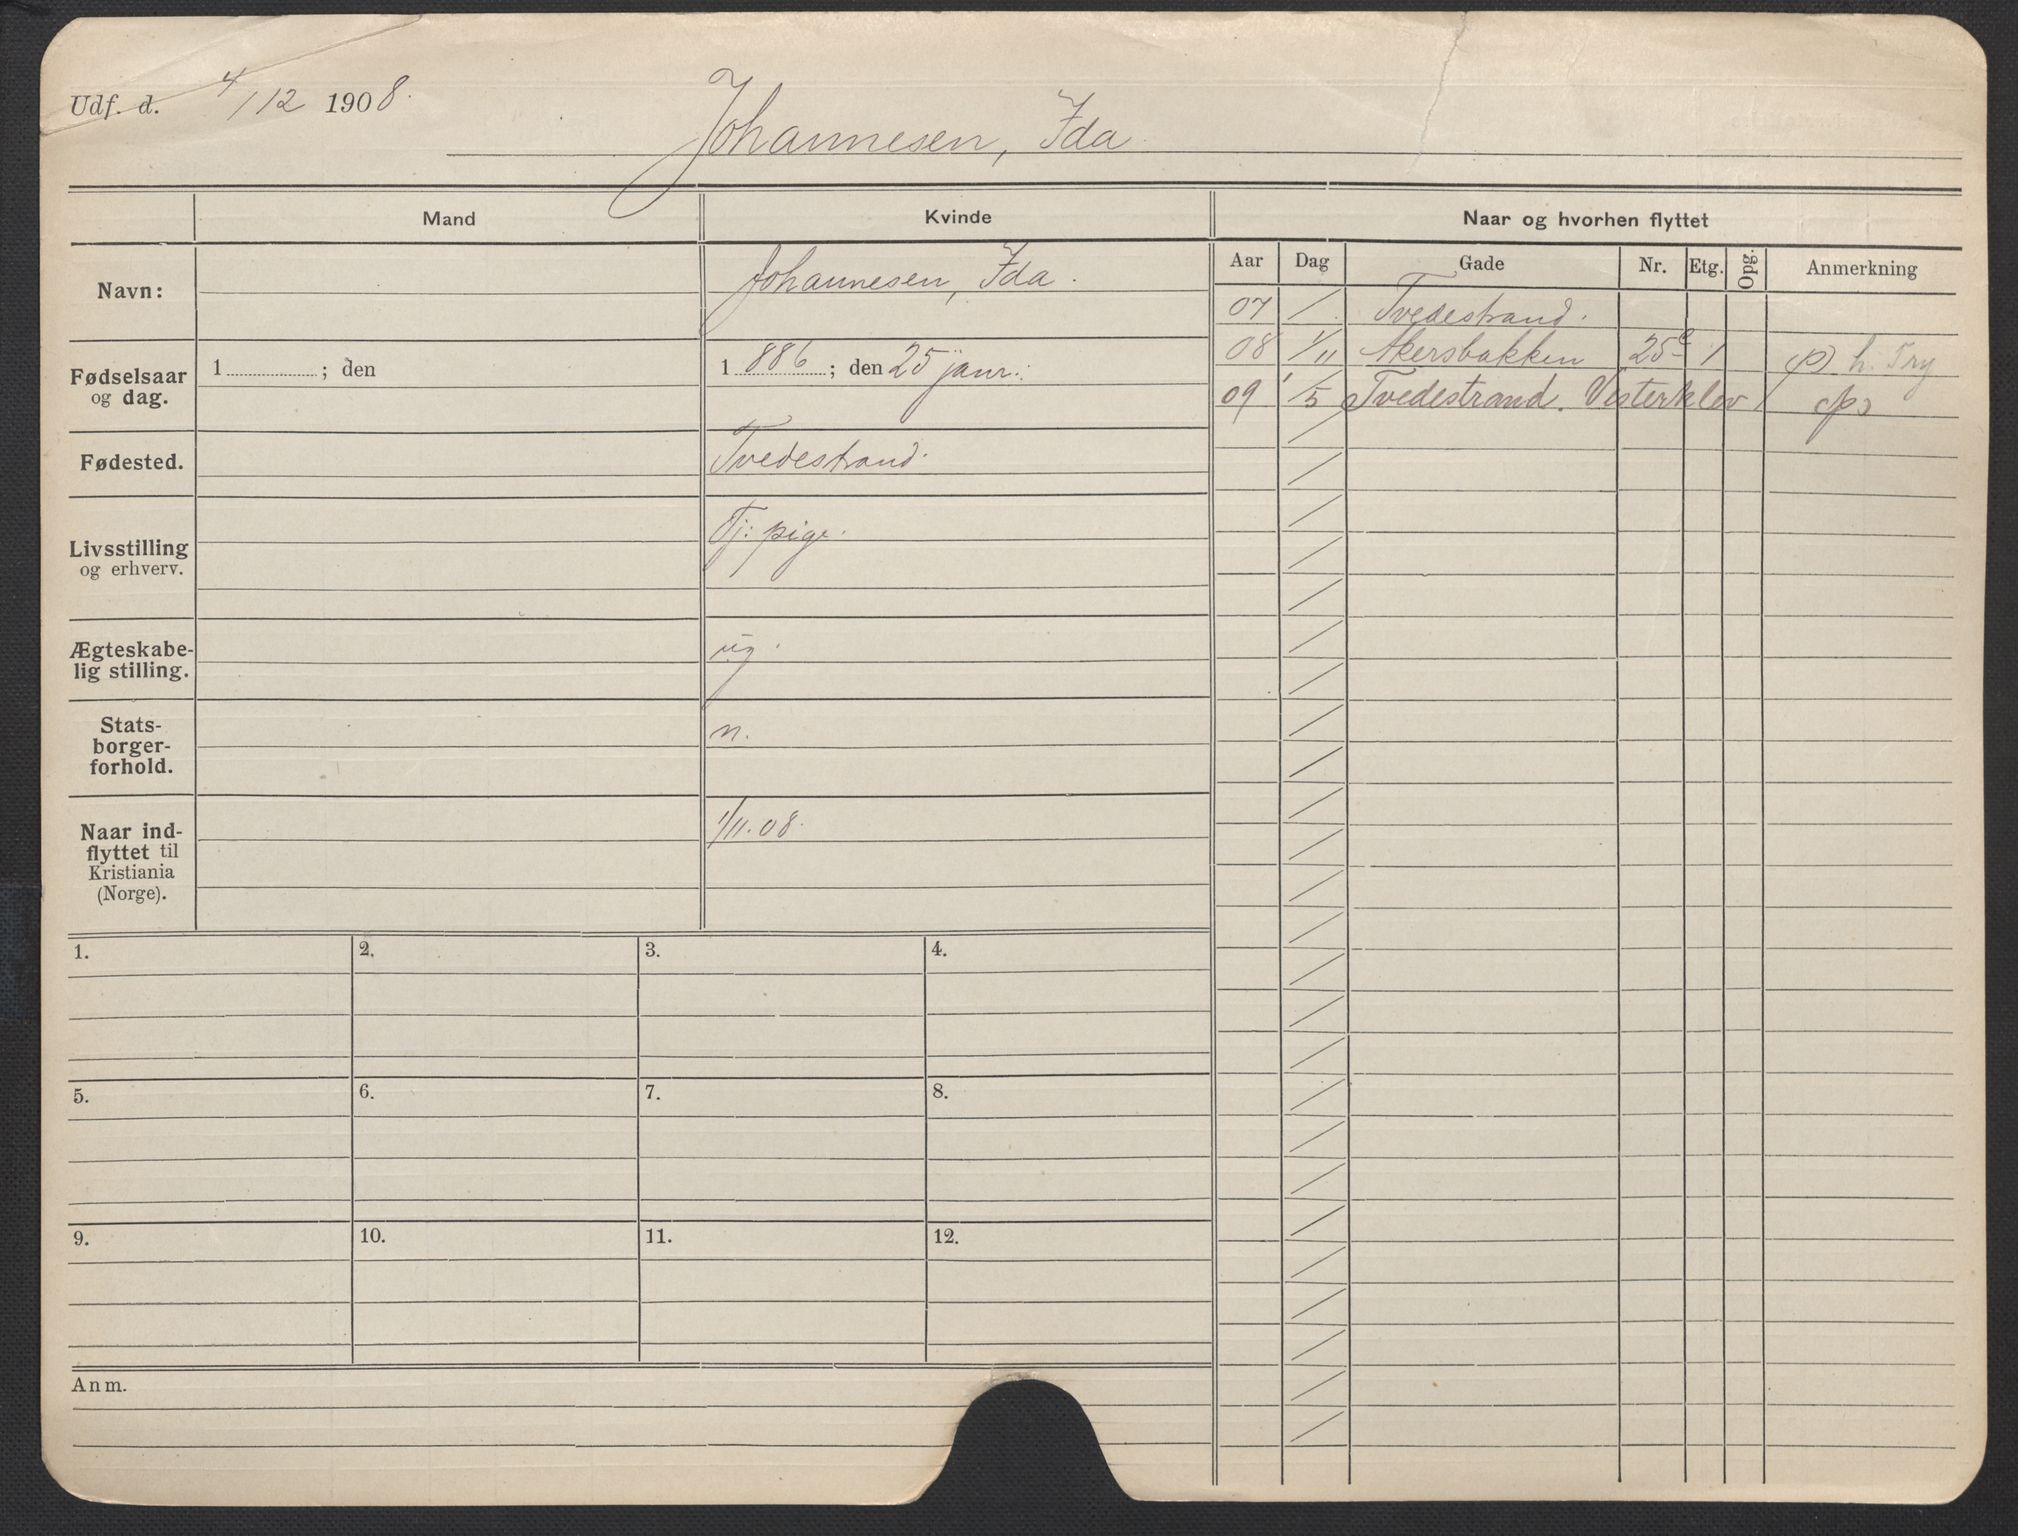 Udf. d. 4/12 1908.
Johannesen, Ida
Mand
Kvinde
Naar og hvorhen flyttet
Aar Dag Gade Nr. Etg. Opg. Anmerkning
Navn:
Johannesen, Ida.
07 / Tvedestrand.
08 1/11 Akersbakken 25c 1 (p) h. Try
09 1/5 Tvedestrand. Vesterklev / (p)
Fødselsaar
og dag.
1 ; den
1 886 ; den 25 janr.
Fødested.
Tvedestrand.
Livsstilling
og erhverv.
Tj: pige.
Ægteskabe-
lig stilling.
ug.
Stats-
borger-
forhold.
n.
Naar ind-
flyttet til
Kristiania
(Norge).
1/11.08.
1. 2. 3. 4.
5. 6. 7. 8.
9. 10. 11. 12.
Anm.